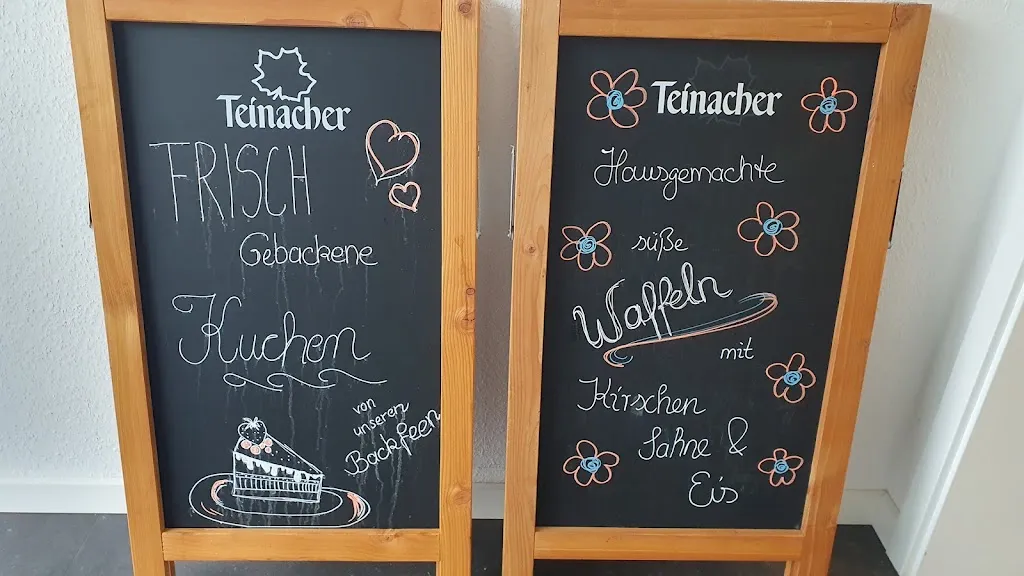 Teinacher
FRISCH
Gebackene
Kuchen
von
unseren
Backfeen
Teinacher
Hausgemachte
süße
Waffeln
mit
Kirschen
Sahne &
Eis